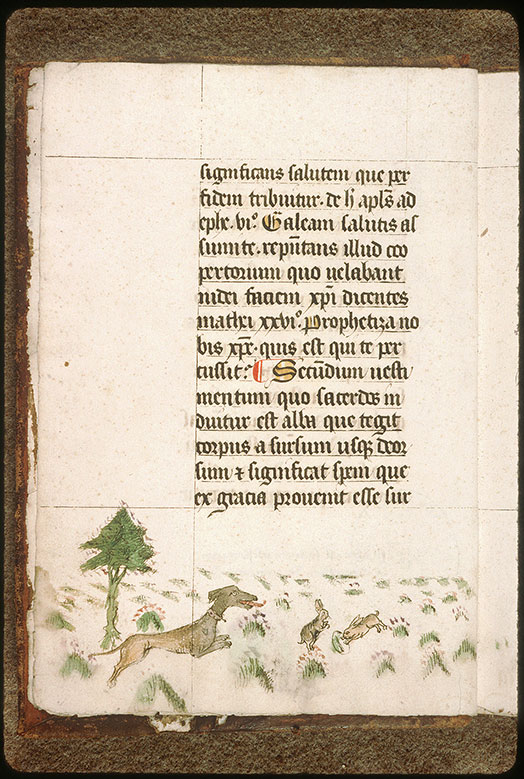 significans salutem que per
fidem tribuitur. de h̄ apl̄s ad
ephe. vi.º Galeam salutis as
sumite. reputans illud coo
pertorium quo uelabant
iudei faciem xp̄i dicentes
mathei xxviº. Prophetiza no
bis xp̄e. quis est qui te per
cussit? ¶ Secūdum uesti
mentum quo sacerdos in
duitur est alba que tegit
corpus a sursum usqꝫ deor
sum ⁊ significat spem que
ex gracia prouenit esse sur